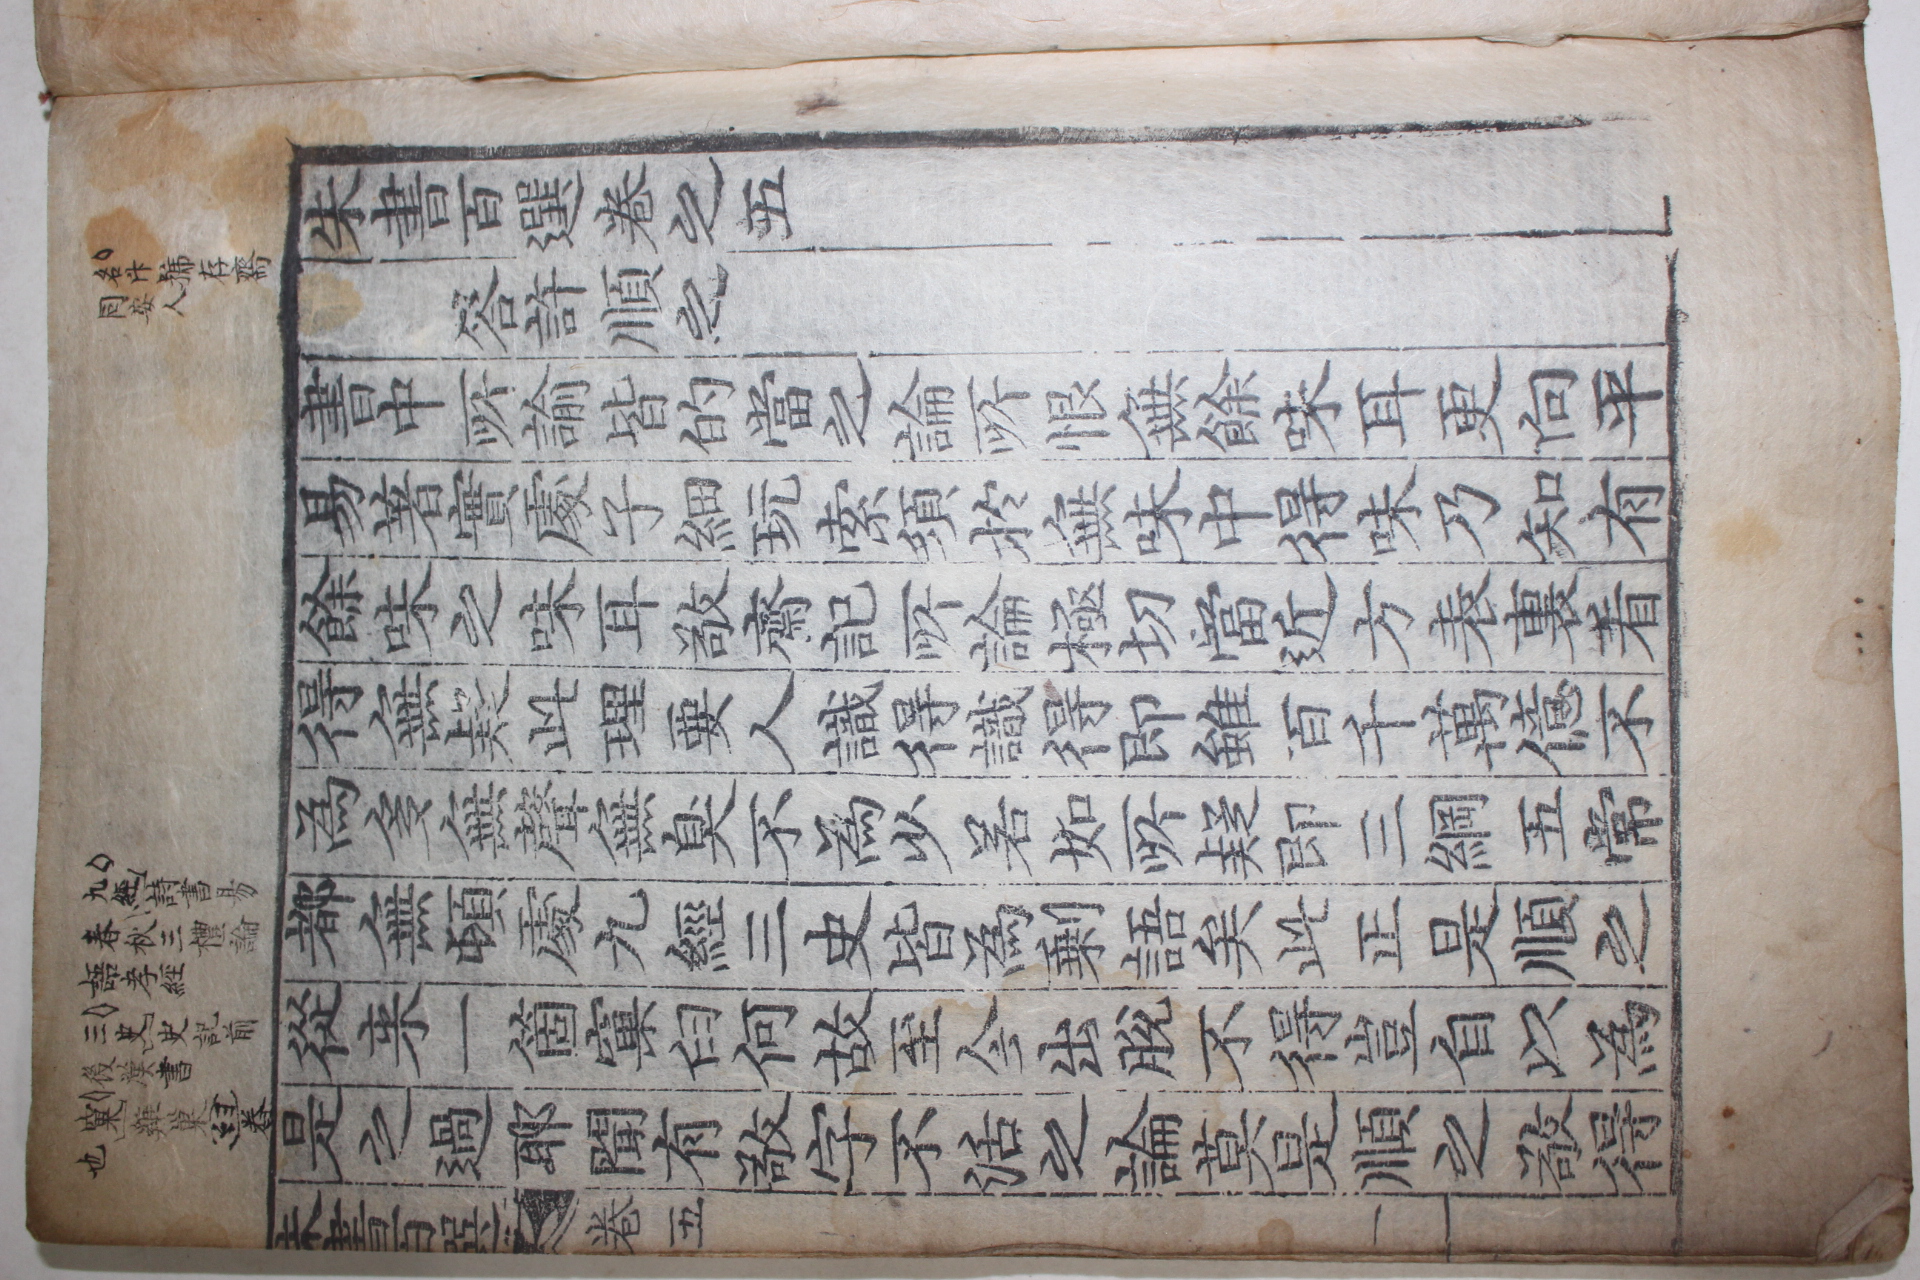 名忭號存齋
同安人
九經詩書易
春秋三禮論
語孝經
三史史記前
後漢書
窠雞巢臼舂
也
朱書百選卷之五
答許順之
書中所諭皆的當之論所恨無餘味耳更向平
易著實處子細玩索須於無味中得味乃知有
餘味之味耳敬齋記所論極切當近方表裏看
得無疑此理要人識得識得即雖百千萬億不
為多無聲無臭不為少若如所疑即三綱五常
都無頓處九經三史皆為剩語矣此正是順之
從来一箇窠臼何故至今出脫不得豈自以為
是之過耶聞有敬字不活之論莫是順之敬得
朱書百選 卷五 一